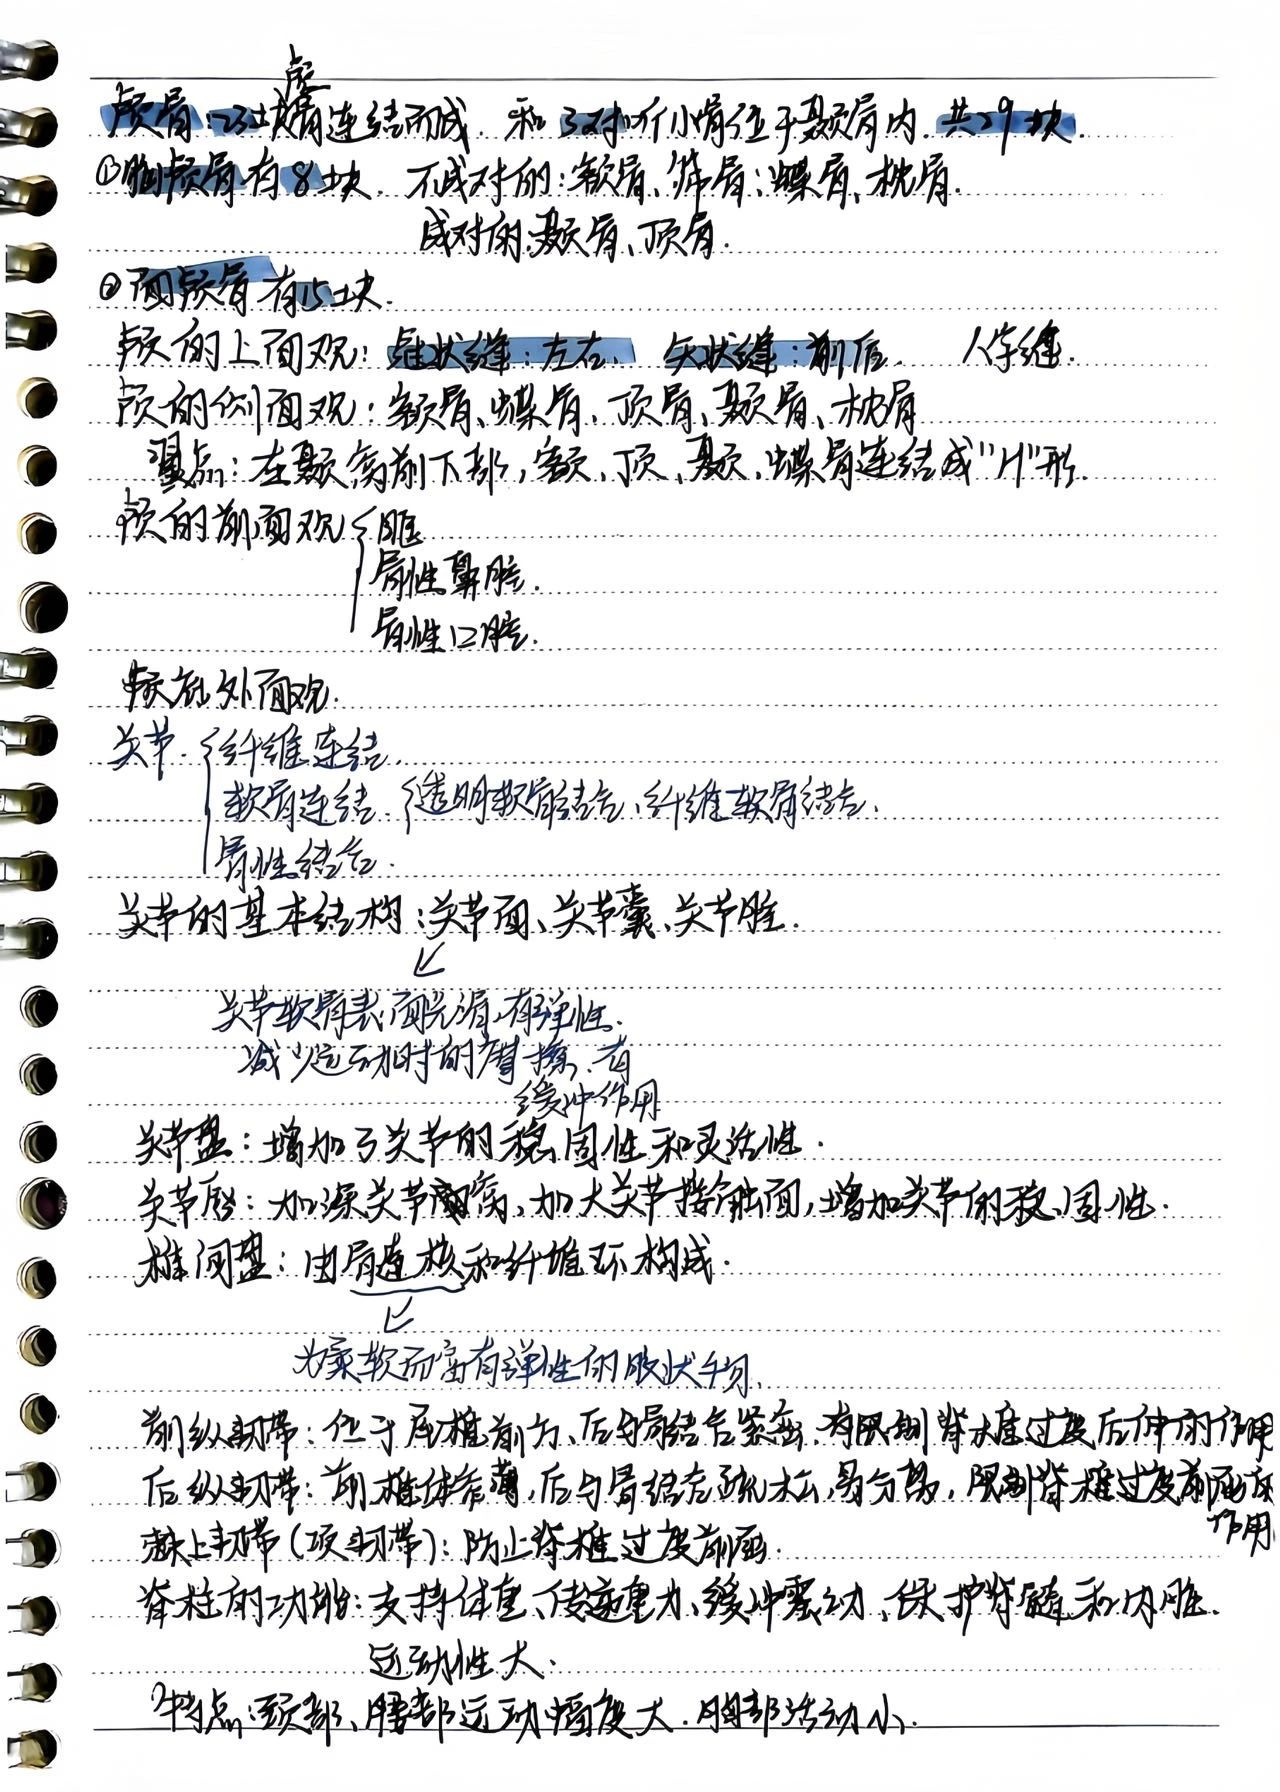 颅
颅骨:23块骨连结而成.和3对听小骨位于颞骨内.共29块.
①脑颅骨有8块.不成对的:额骨、筛骨;蝶骨、枕骨.
成对的:颞骨、顶骨.
②面颅骨有15块.
颅的上面观:冠状缝:左右、矢状缝:前后. 人字缝.
颅的侧面观:额骨、蝶骨、顶骨、颞骨、枕骨
翼点:在颞窝前下部,额、顶、颞、蝶骨连结成"H"形.
颅的前面观{眶
骨性鼻腔.
骨性口腔.
颅底外面观.
关节.{纤维连结.
软骨连结.{透明软骨结合、纤维软骨结合.
骨性结合.
关节的基本结构:关节面、关节囊、关节腔.
↙
关节软骨表面光滑,有弹性.
减少运动时的摩擦、有
缓冲作用
关节盘:增加了关节的稳固性和灵活性.
关节唇:加深关节窝,加大关节接触面,增加关节的稳固性.
椎间盘:由骨逩核和纤维环构成.
↙
为柔软而富有弹性的胶状物.
前纵韧带:位于 椎前方、后与骨结合紧密.有限制脊椎过度后伸的作用
后纵韧带:前椎体 薄,后与骨结合疏松,易分离,限制脊椎过度前屈
作用
棘上韧带(项韧带):防止脊椎过度前屈.
脊柱的功能:支持体重、传递重力、缓冲震动、保护脊髓和内脏.
运动性大.
特点:颈部、腰部运动幅度大.胸部活动小.